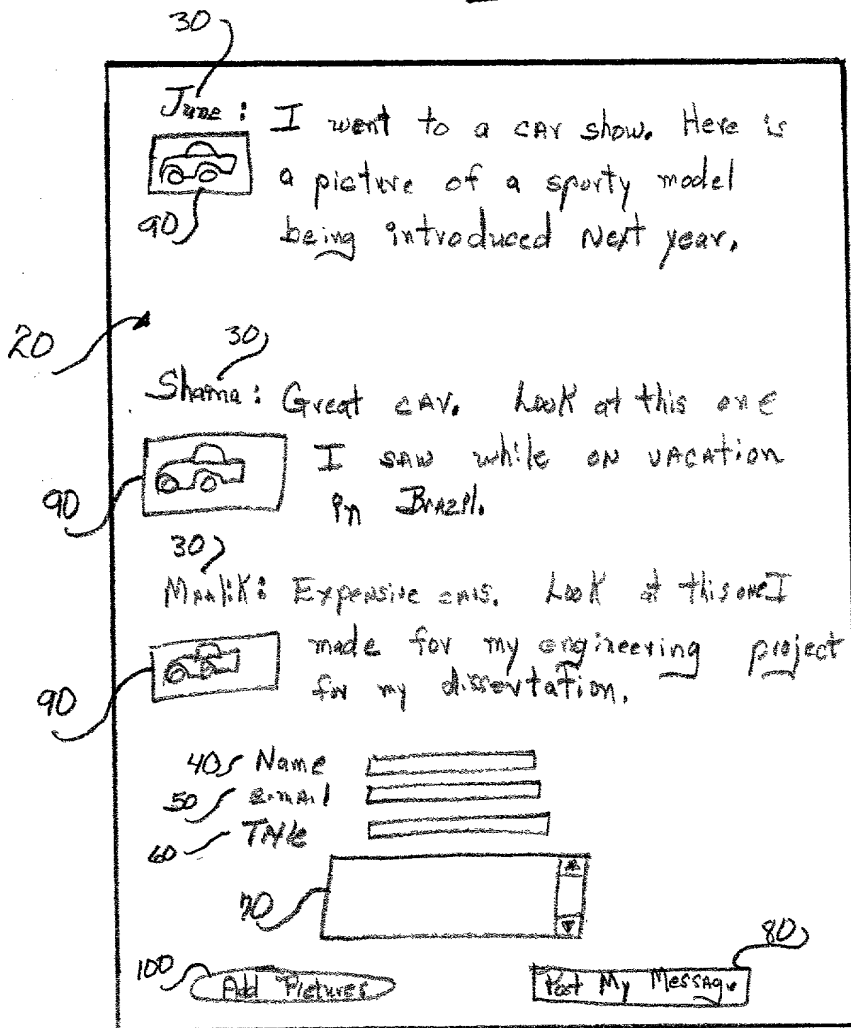 30
June: I went to a car show. Here is
a picture of a sporty model
90
being introduced Next year.
20
30
Shama: Great car. Look at this one
I saw while on vacation
90
in Brazil.
30
Maalik: Expensive cars. Look at this one I
made for my engineering project
90
for my dissertation.
40 Name
50 e-mail
60 Title
70
80
100 Add Pictures Post My Message